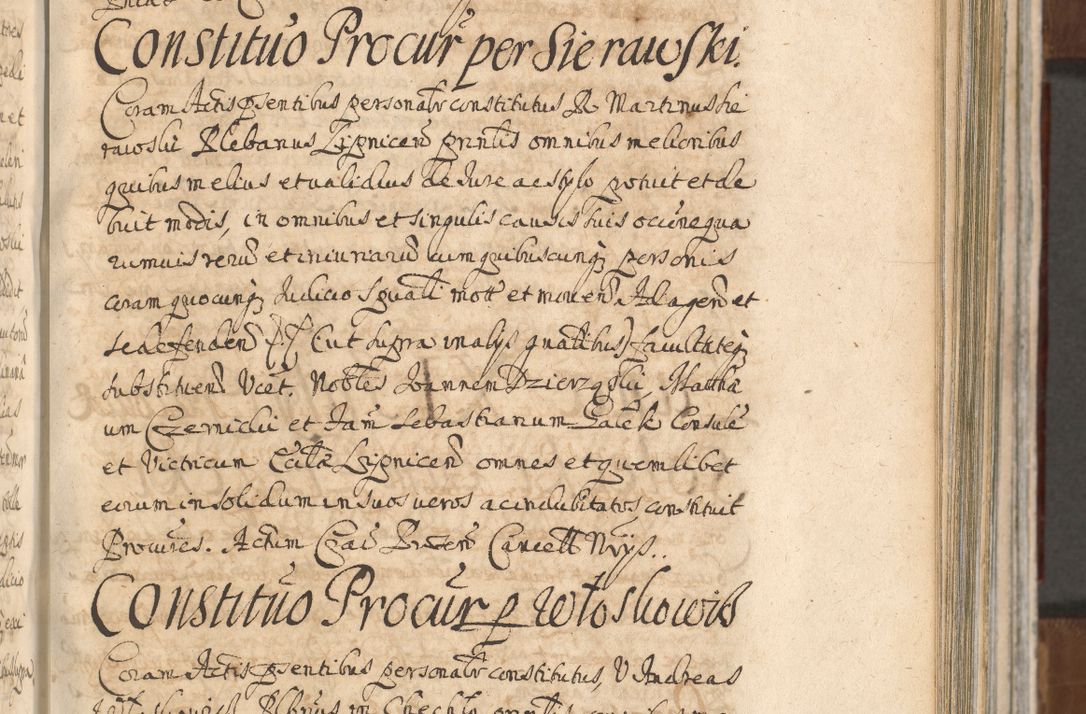 Constituõ Procur̃ per Sierawski.
Coram Actis p̃sentibus personalr̃ constitutus R Martinus Sie
rawski Plebanus Lipnicen̄ prn̄tis omnibus melioribus
quibus melius et validius de Jure ac stylo potuit et de
buit modis, in omnibus et singulis causis suis ociõne qua
rumvis rerū et iniuriarū cum quibuscunq; personis
coram quocunq; Judicio sp̄uali mott et moven̄ Ad agen̄ et
se defenden̄ (Cut supra in alys p̄natibus) facultateq;
substituen̄ Vcet. Nobles Joannem Dzierzgski, Matthæ
um Czernicki et Fam̄ Sebastianum Galek Consulē
et Victricum Ecĉlæ Lipnicen̄ omnes et quemlibet
eorum in solidum in suos veros ac indubitatos, constituit
Procures. Actum Præsen̄ Cancell
Constituõ Procur̃ p Włoskowic
Coram Actis p̃sentibus personalr̃ constitutus, V Andreas
in Chechło